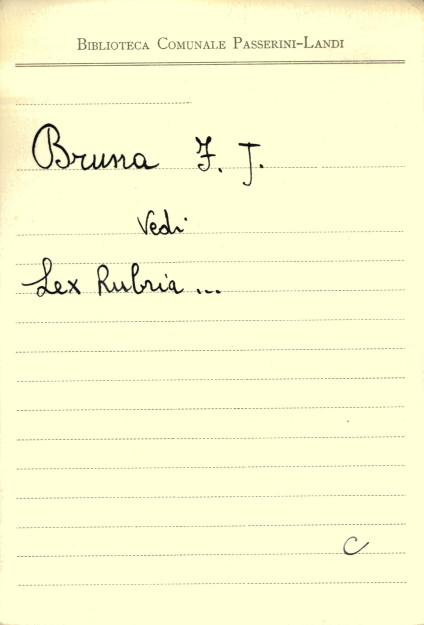 Biblioteca Comunale Passerini-Landi
Bruna F. J.
Vedi
Lex Rubria ...
C